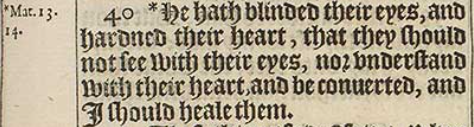 *Mat. 13.
14.
40 *He hath blinded their eyes, and
hardned their heart, that they should
not see with their eyes, nor vnderstand
with their heart, and be conuerted, and
I should heale them.